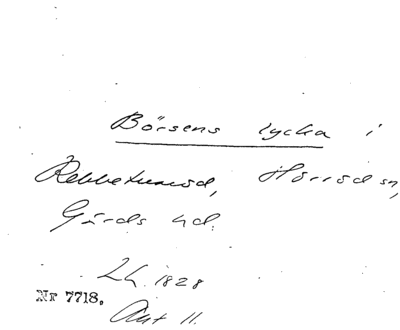 Börsens lycka i
Rebbetuaröd, Hörröd sn,
Gärds hd.
LH. 1828
Nr 7718.
Akt 11.